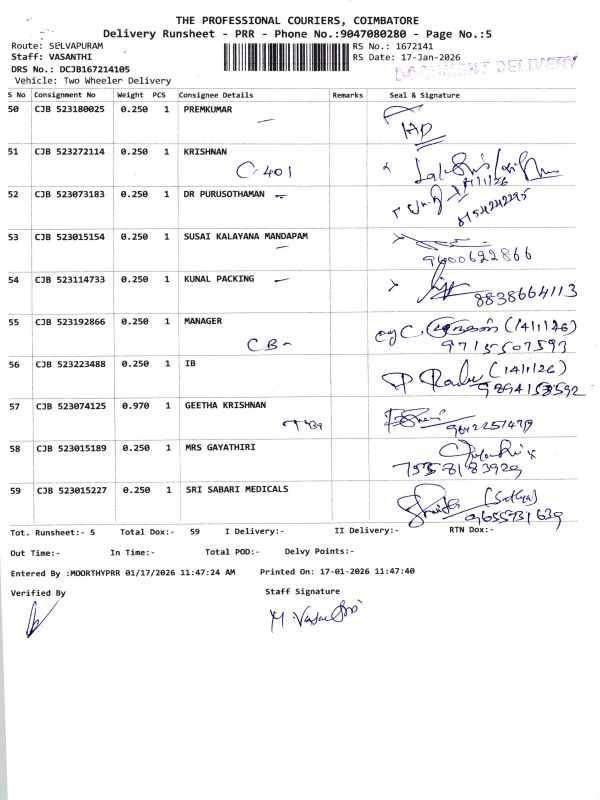 THE PROFESSIONAL COURIERS, COIMBATORE
Delivery Runsheet - PRR - Phone No.:9047080280 - Page No.:5
Route: SELVAPURAM
RS No.: 1672141
Staff: VASANTHI
RS Date: 17-Jan-2026
DOCUMENT DELIVERY
DRS No.: DCJB167214105
Vehicle: Two Wheeler Delivery
S No Consignment No Weight PCS Consignee Details Remarks Seal & Signature
50 CJB 523180025 0.250 1 PREMKUMAR
51 CJB 523272114 0.250 1 KRISHNAN
C-401
52 CJB 523073183 0.250 1 DR PURUSOTHAMAN
53 CJB 523015154 0.250 1 SUSAI KALAYANA MANDAPAM
9600622866
54 CJB 523114733 0.250 1 KUNAL PACKING
8838664113
55 CJB 523192866 0.250 1 MANAGER
(14/1/26)
CB-
9715507593
56 CJB 523223488 0.250 1 IB
(14/1/26)
57 CJB 523074125 0.970 1 GEETHA KRISHNAN
58 CJB 523015189 0.250 1 MRS GAYATHIRI
59 CJB 523015227 0.250 1 SRI SABARI MEDICALS
Tot. Runsheet:- 5 Total Dox:- 59 I Delivery:- II Delivery:- RTN Dox:-
Out Time:- In Time:- Total POD:- Delvy Points:-
Entered By :MOORTHYPRR 01/17/2026 11:47:24 AM Printed On: 17-01-2026 11:47:40
Verified By Staff Signature